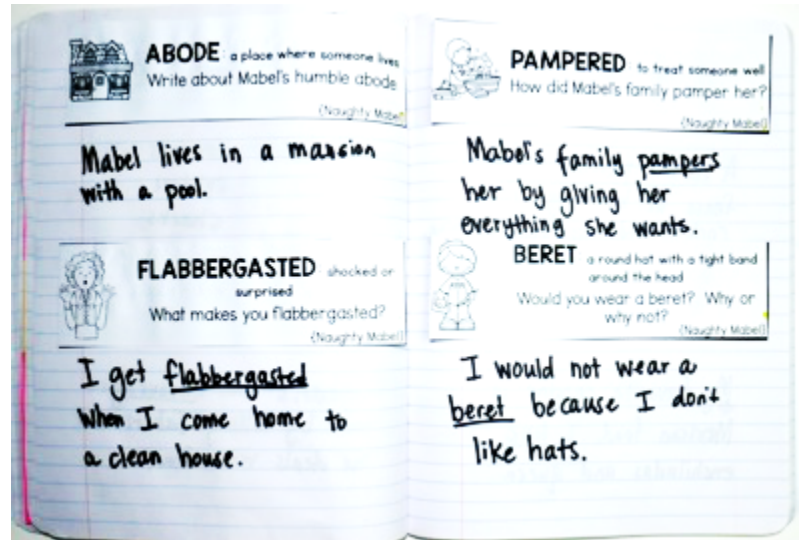 ABODE a place where someone lives
Write about Mabel's humble abode
(Naughty Mabel)
Mabel lives in a mansion
with a pool.
FLABBERGASTED shocked or
surprised
What makes you flabbergasted?
(Naughty Mabel)
I get flabbergasted
when I come home to
a clean house.
PAMPERED to treat someone well
How did Mabel's family pamper her?
(Naughty Mabel)
Mabel's family pampers
her by giving her
everything she wants.
BERET a round hat with a tight band
around the head
Would you wear a beret? Why or
why not?
(Naughty Mabel)
I would not wear a
beret because I don't
like hats.